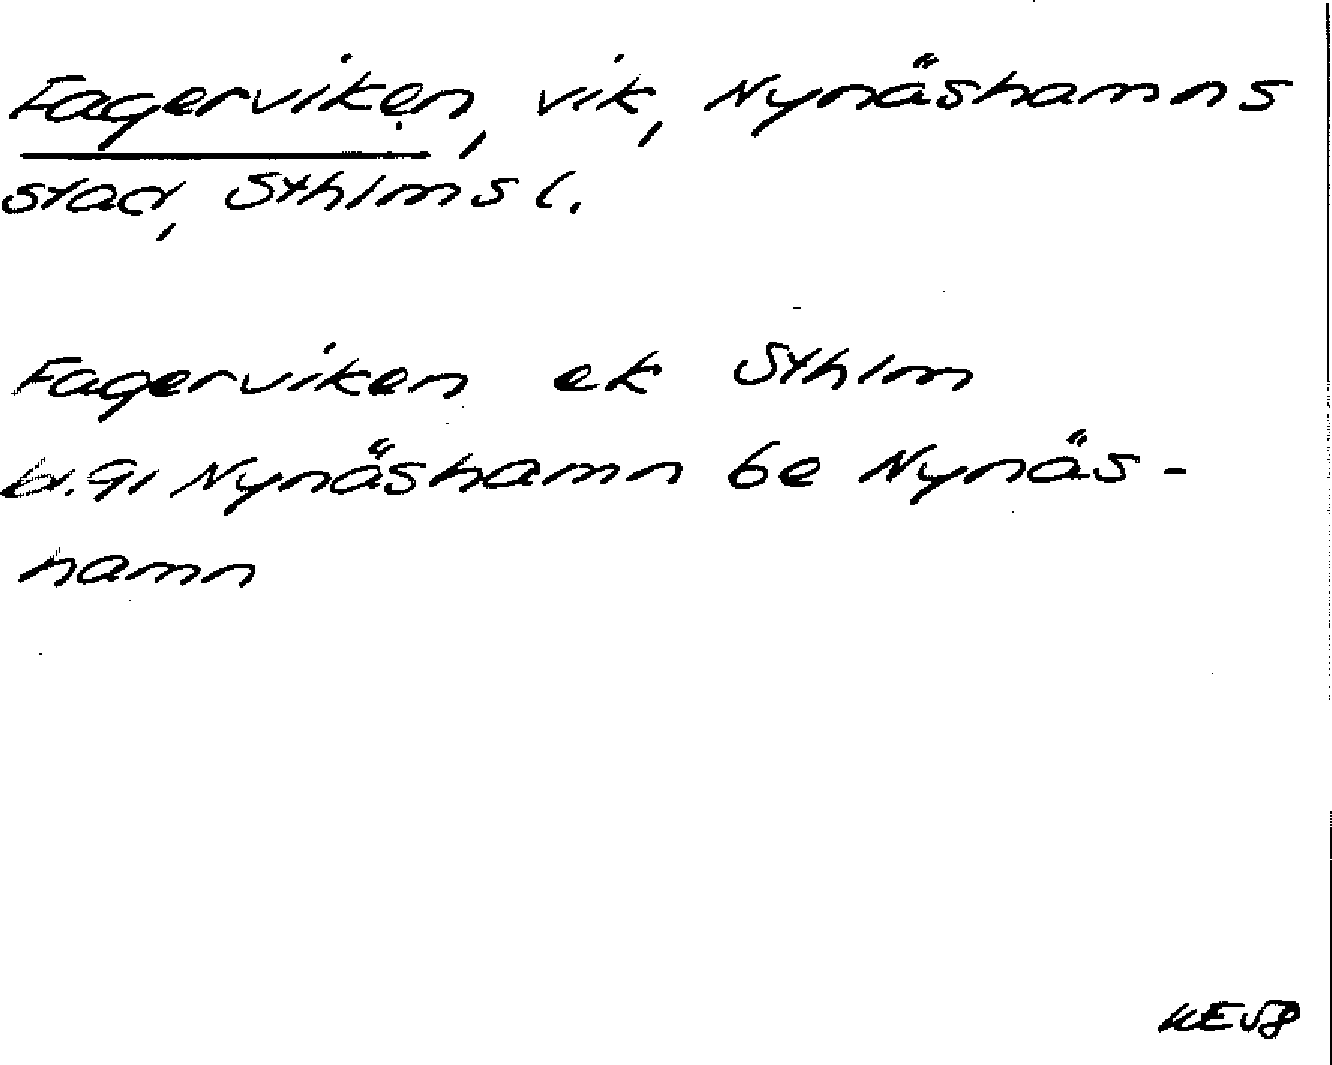 Fagerviken, vik, Nynäshamns
stad, Sthlms l.
Fagerviken ek Sthlm
bl. 91 Nynäshamn be Nynäs-
hamn